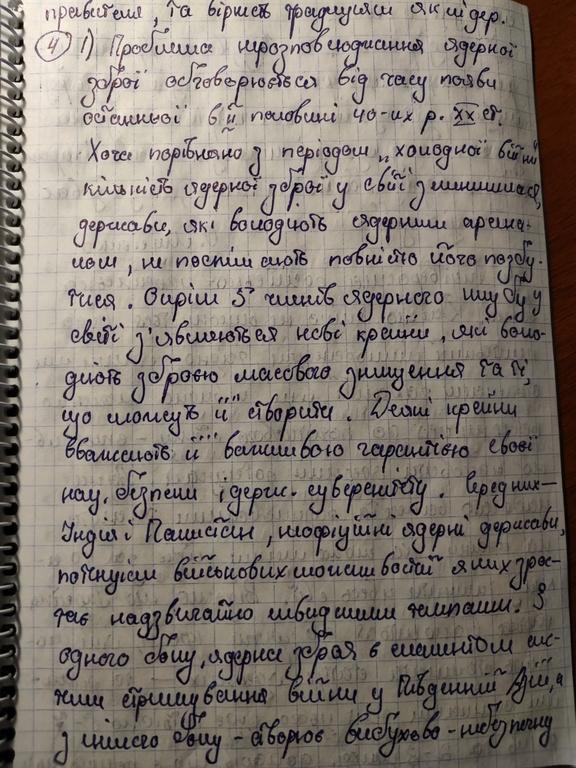 правителя, та вірність традиціям як лідер.
④ 1) Проблема нерозповсюдження ядерної
зброї обговорюється від часу появи
останньої в ІІ половині 40-их р. XX ст.
Хоча порівняно з періодом „холодної війни"
кількість ядерної зброї у світі зменшилася,
держави, які володіють ядерним арсена-
лом, не поспішають повністю його позбу-
тися. Окрім 5 членів ядерного клубу у
світі з'являються нові країни, які воло-
діють зброєю масового знищення та ті,
що можуть її створити. Деякі країни
вважають її важливою гарантією своєї
нац. безпеки і держ. суверенітету. Серед них –
Індія і Пакистан, неофіційні ядерні держави,
потенціал військових можливостей яких зрос-
тає надзвичайно швидкими темпами. З
одного боку, ядерна зброя є елементом сис-
теми стримування війни у Південній Азії, а
з іншого боку - створює вибухово-небезпечну